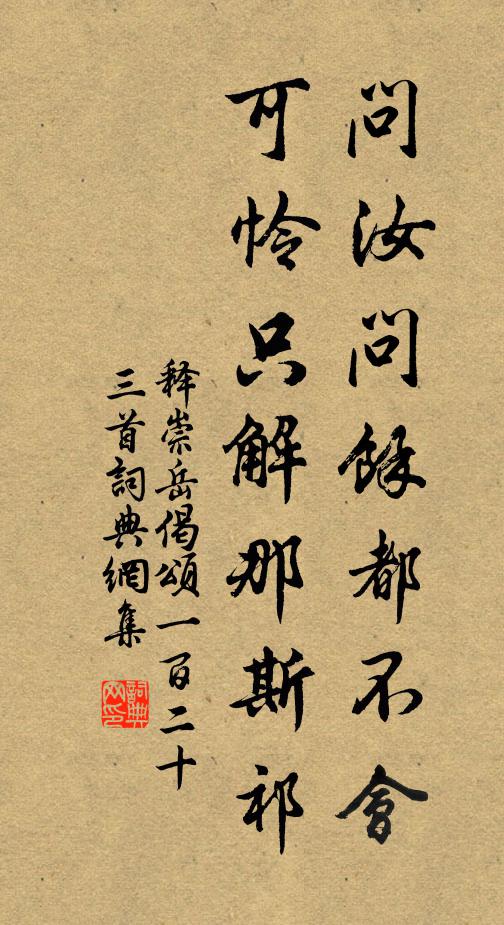 問汝問餘都不會
可怜只解那斯祁
釋崇岳偈頌一百二十
三首詞典網集
詞典
网印